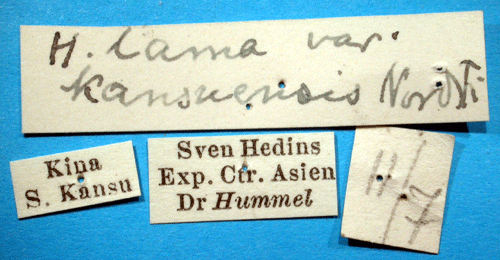 H. lama var.
kansuensis Nordstr
Kina
S. Kansu
Sven Hedins
Exp. Ctr. Asien
Dr Hummel